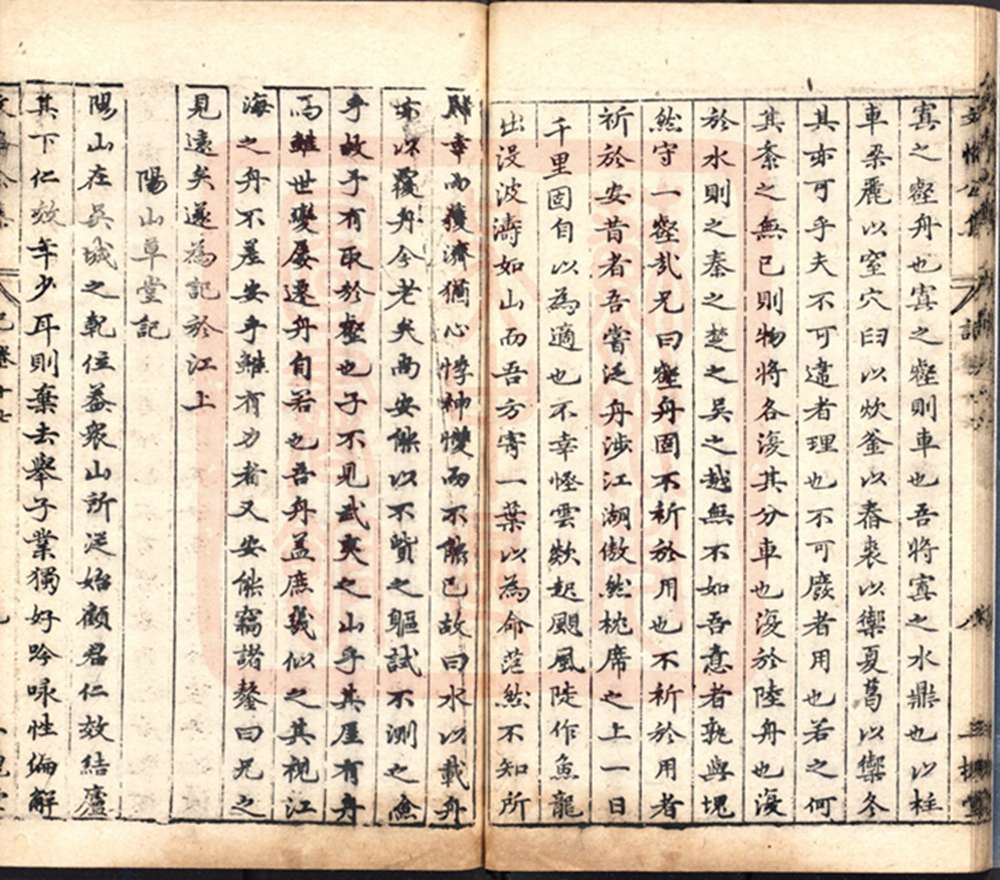 寘之壑舟也寘之壑則車也吾將寘之水鼎也以柱
車梁麗以窒穴臼以炊釜以舂裘以禦夏葛以禦冬
其亦可乎夫不可違者理也不可廢者用也若之何
其紊之無已則物將各復其分車也復於陸舟也復
於水則之秦之楚之吳之越無不如吾意者孰與塊
然守一壑哉兄曰壑舟固不祈於用也不祈於用者
祈於安昔者吾嘗泛舟涉江湖傲然枕席之上一日
千里固自以為適也不幸怪雲歘起颶風陡作魚龍
出沒波濤如山而吾方寄一葉以為命茫然不知所
歸幸而獲濟猶心悸神慢而不能已故曰水以載舟
亦以覆舟今老矣尚安能以不貲之軀試不測之魚
乎故予有取於壑也子不見武夷之山乎其厓有舟
焉雖世變屢遷舟自若也吾舟蓋庶幾似之其視江
海之舟不差安乎雖有力者又安能竊諸鏊曰兄之
見遠矣遂為記於江上
陽山草堂記
陽山在吳城之乾位蓋衆山所從始顧君仁效結廬
其下仁效年少耳則棄去舉子業獨好吟咏性偏解